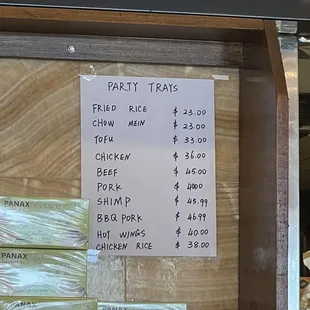 PARTY TRAYS
FRIED RICE $ 23.00
CHOW MEIN $ 23.00
TOFU $ 33.00
CHICKEN $ 36.00
BEEF $ 45.00
PORK $ 4000
SHIMP $ 45.99
BBQ PORK $ 46.99
HOT WINGS $ 40.00
CHICKEN RICE $ 38.00
PANAX
PANAX
PANAX